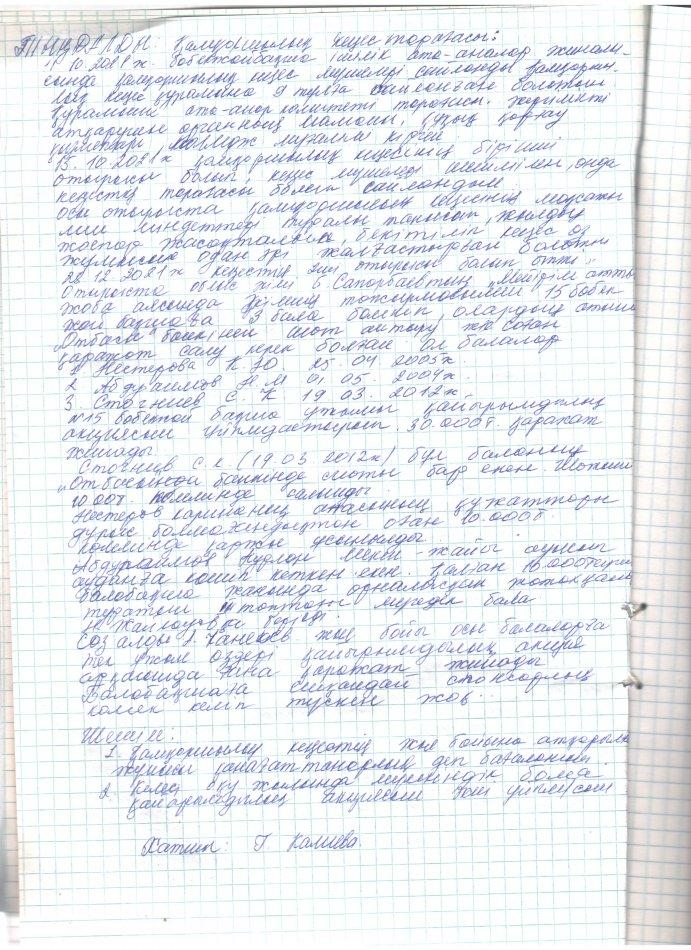 ТЫҢДАЛДЫ: Қамқоршылық кеңес төрағасы:
10 2021 ж бөбекжайбақша ішілік ата-аналар жиналы-
сында қамқоршылық кеңес мүшелері сайланды қамқоршы-
лық кеңес құрамына 9 тұлға сайланған болатын
құрамына ата-аналар комитеті төрағасы, жергілікті
атқарушы органның маманы, құқық қорғау
қызметкері, мұғалімі кірген
15. 10 2021ж қамқоршылық кеңесінің бірінші
отырысы болып, кеңес мүшелері шешімімен, онда
кеңестің төрағасы болып сайландым
осы отырыста қамқоршылық кеңесінің мақсаты
мен міндеттері туралы танысып, жылдық
жоспар жасақталып, бекітіліп кеңес өз
жұмысын одан әрі жалғастырған болатын
28 12. 2021 ж кеңестің отырысы болып өтті.
Отырыста облыс әкімі Б. Сапарбаевтың „Мейірім атты
жоба аясында әкімнің тапсырмасымен 15 бөбек
жай бақшаға 3 бала бөлініп олардың атына
„Отбасы банкінен шот ашу, және соған
қаражат салу керек болған ол балалар
1. Нестерова К. Ю 25. 04 2005ж
2 Абдураимов Н. М 01 05 2004ж.
3. Стогниев С. К 19 03. 2012ж.
№15 бөбекжай бақша ұжымы қайырымдылық
акциясын ұйымдастырып 30.000т. қаражат
жинады.
Стогнив С. К (19 03 2012ж) бұл баланың
„Отбасы банкінде шоты бар екен. Шотына
10 00т. көлемінде салынды
Нестерова каринаның анасының құжаттары
дұрыс болмағандықтан оған 10.000т.
көлемінде қаржы ұсынылды.
Абдураимов Нұрлан мекен жайы ауысып
ауданға көшіп кеткен екен. Қалған 10 000теңгені
балабақша жанында орналасқан жатақханада
тұратын топтағы мүгедек бала
Н. берілді.
Сөз алды жыл бойы осы балаларға
тек ұжым өздері қайырымдылық акция
арқылы ғана қаражат жинады
Балабақшаға ешқандай спонсорлық
көмек келіп түскен жоқ..
Шешім:
1. Қамқоршылық кеңестің жыл бойына атқарылған
жұмысы қанағаттанарлық деп бағалансын.
2 Келесі оқу жылында мүмкіндік болса
қайырымдылық акциясын
Хатшы: Г. Калиева.